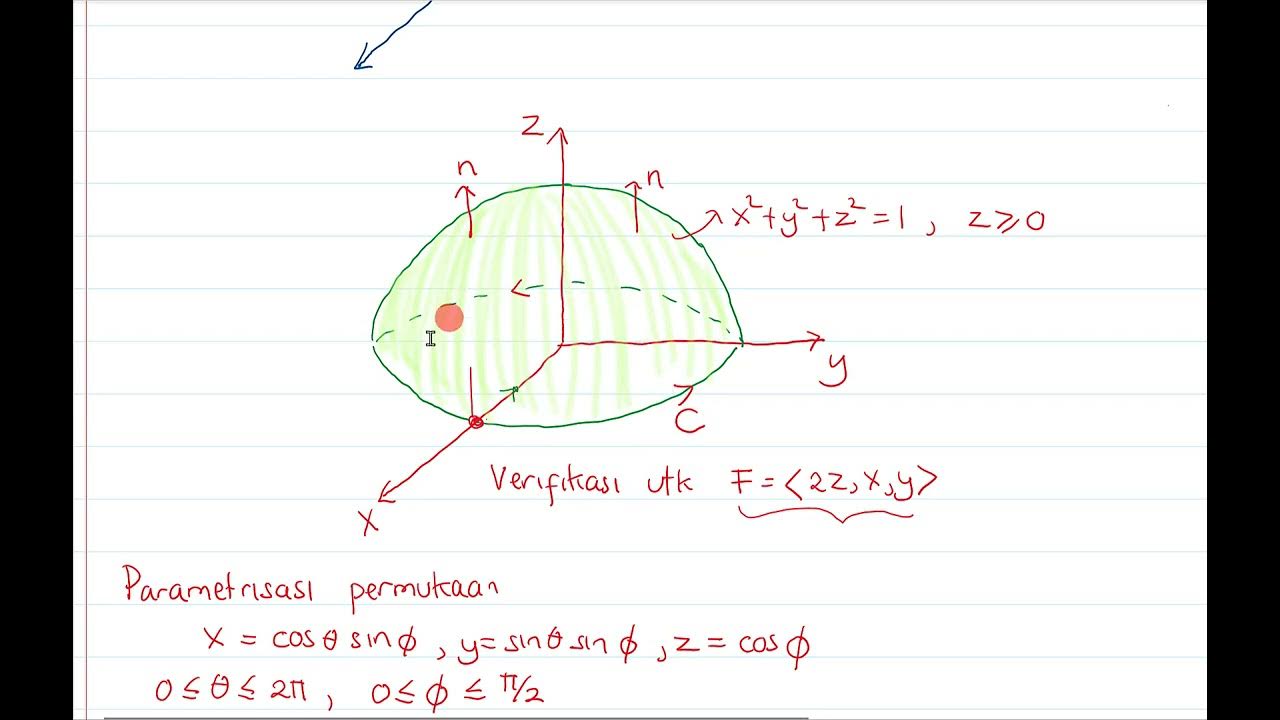 z
n
n
x²+y²+z²=1, z≥0
y
C
Verifikasi utk F=⟨2z,x,y⟩
x
Parametrisasi permukaan
x = cosθ sinϕ, y=sinθ sinϕ, z=cosϕ
0≤θ≤2π, 0≤ϕ≤π/2